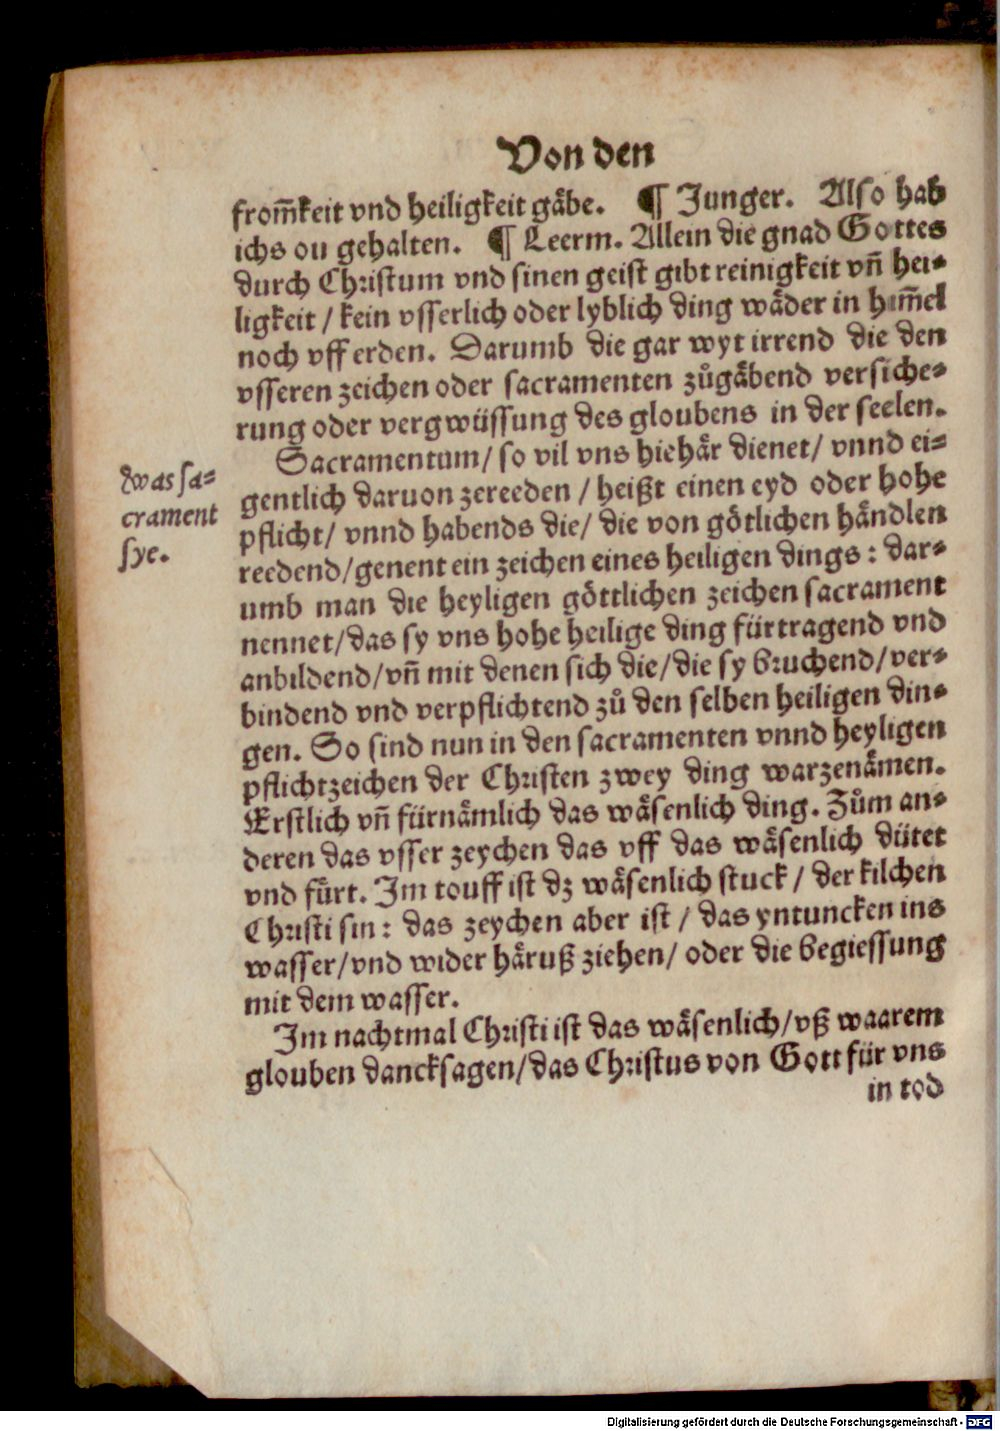 Von den
from̃keit vnd heiligkeit gåbe. ¶ Junger. Also hab
ichs ou gehalten. ¶ Leerm. Allein die gnad Gottes
durch Christum vnd sinen geist gibt reinigkeit vñ hei⸗
ligkeit / kein vsserlich oder lyblich ding wåder in him̃el
noch vff erden. Darumb die gar wyt irrend die den
vsseren zeichen oder sacramenten zůgåbend versiche⸗
rung oder vergwüssung des gloubens in der seelen.
Sacramentum/ so vil vns hiehår dienet/ vnnd ei⸗
gentlich daruon zereeden / heißt einen eyd oder hohe
pflicht/ vnnd habends die/ die von götlichen håndlen
reedend/genent ein zeichen eines heiligen dings : dar⸗
umb man die heyligen göttlichen zeichen sacrament
nennet/das sy vns hohe heilige ding fürtragend vnd
anbildend/vñ mit denen sich die/die sy bruchend/ver⸗
bindend vnd verpflichtend zů den selben heiligen din⸗
gen. So sind nun in den sacramenten vnnd heyligen
pflichtzeichen der Christen zwey ding warzenåmen.
Erstlich vñ fürnåmlich das wåsenlich ding. Zům an⸗
deren das vsser zeychen das vff das wåsenlich dütet
vnd fürt. Im touff ist dz wåsenlich stuck / der kilchen
Christi sin : das zeychen aber ist / das yntuncken ins
wasser/vnd wider håruß ziehen/ oder die begiessung
mit dem wasser.
Im nachtmal Christi ist das wåsenlich/vß waarem
glouben dancksagen/das Christus von Gott für vns
in tod
was sa⸗
crament
sye.
Digitalisierung gefördert durch die Deutsche Forschungsgemeinschaft - DFG